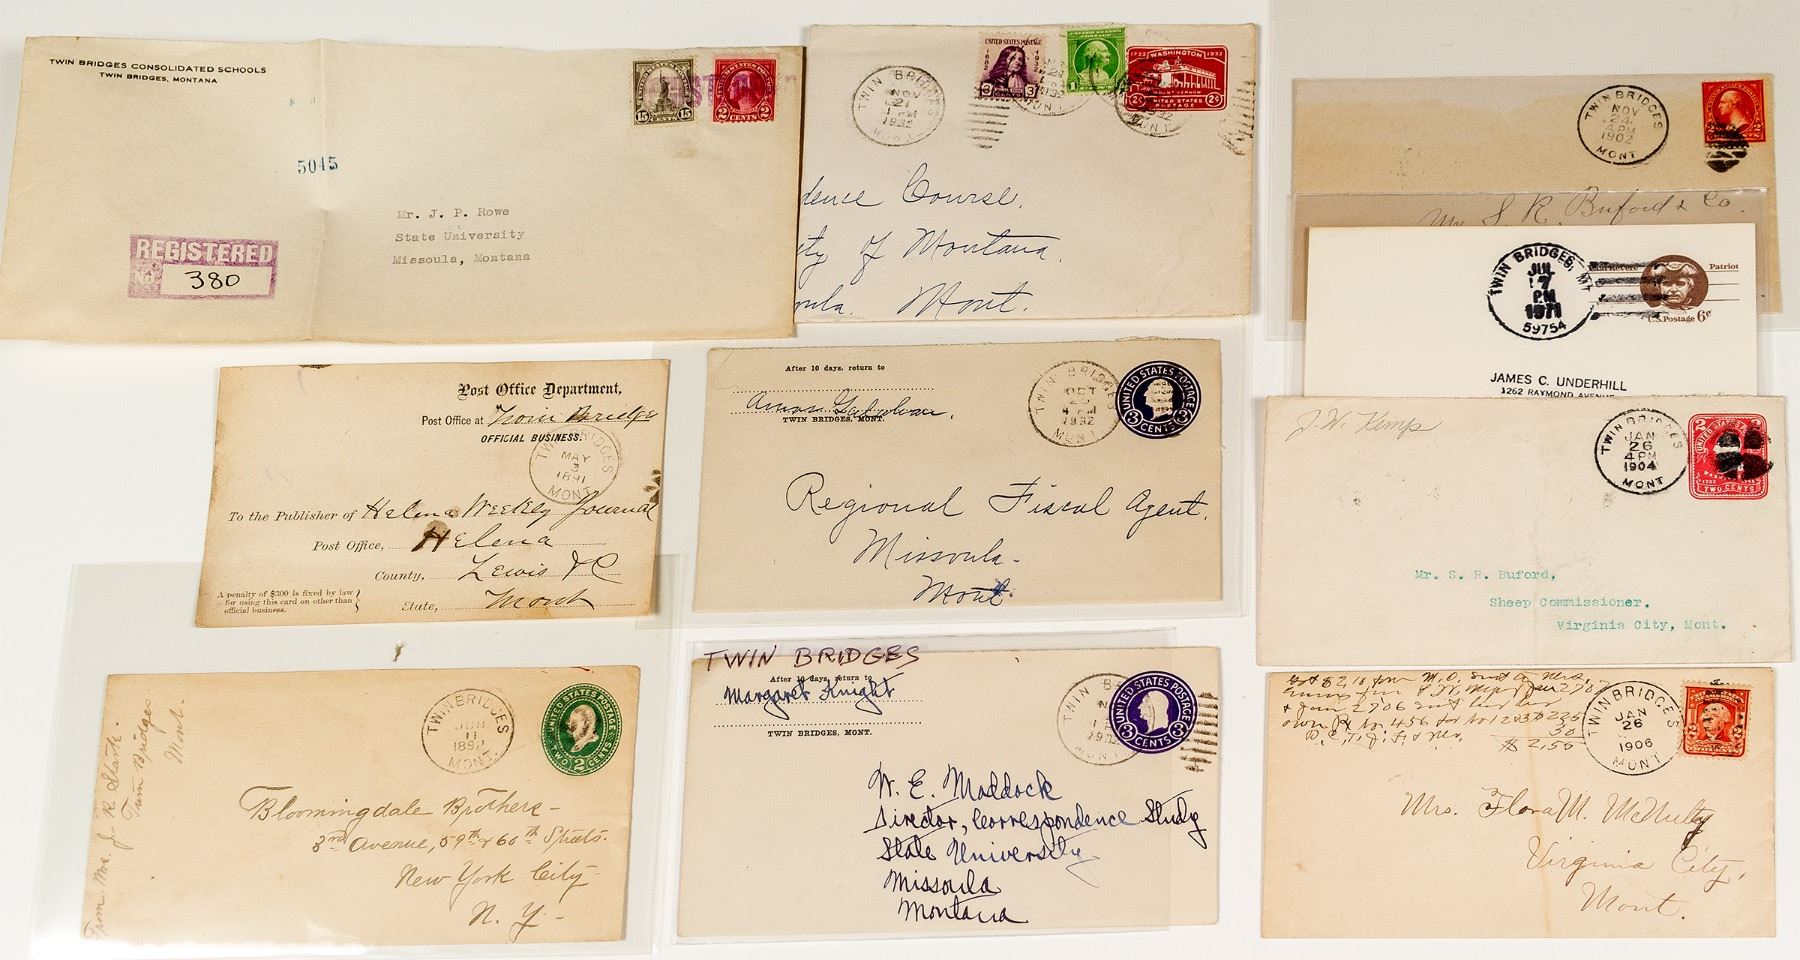 TWIN BRIDGES CONSOLIDATED SCHOOLS
TWIN BRIDGES, MONTANA
UNITED STATES POSTAGE
15 CENTS 15
2 CENTS 2
5045
Mr. J. P. Rowe
State University
Missoula, Montana
REGISTERED
380
UNITED STATES POSTAGE
1682
1932
3 CENTS 3
1732 WASHINGTON 1932
MOUNT VERNON
UNITED STATES
POSTAGE
TWIN BRIDGES
NOV
21
1 PM
1932
MONT
dence Course.
ty of Montana.
oula. Mont.
TWIN BRIDGES
NOV
24
4 PM
1902
MONT
Mr S. R. Buford & Co.
TWIN BRIDGES, MT
JUL
7
PM
1971
59754
Paul Revere Patriot
U.S. Postage 6¢
JAMES C. UNDERHILL
1262 RAYMOND AVENUE
Post Office Department,
Post Office at Twin Bridge
OFFICIAL BUSINESS.
TWIN BRIDGES
MAY
3
1891
MONT
To the Publisher of Helena Weekly Journal
Post Office, Helena
County, Lewis & C
State, Mont
A penalty of $300 is fixed by law
for using this card on other than
official business.
After 10 days, return to
TWIN BRIDGES, MONT.
TWIN BRIDGES
OCT
4 PM
1932
MONT
UNITED STATES POSTAGE
3 CENTS 3
Regional Fiscal Agent.
Missoula.
Mont.
J. W. Kemp
TWIN BRIDGES
JAN
26
4 PM
1904
MONT
TWO CENTS
Mr. S. R. Buford,
Sheep Commissioner,
Virginia City, Mont.
From Mrs. J. R. State.
Twin Bridges
Mont.
TWIN BRIDGES
11
MONT.
UNITED STATES POSTAGE
TWO 2 CENTS
Bloomingdale Brothers
3rd Avenue, 59th & 60th Streets.
New York City
N. Y.
TWIN BRIDGES
After 10 days, return to
Margaret Knight
TWIN BRIDGES, MONT.
1932
MONT
UNITED STATES POSTAGE
3 CENTS 3
W. E. Maddock
Director, Correspondence Study
State University
Missoula
Montana
TWIN BRIDGES
JAN
26
1906
MONT
$ 2,56
Mrs. Flora M. McNulty
Virginia City,
Mont.